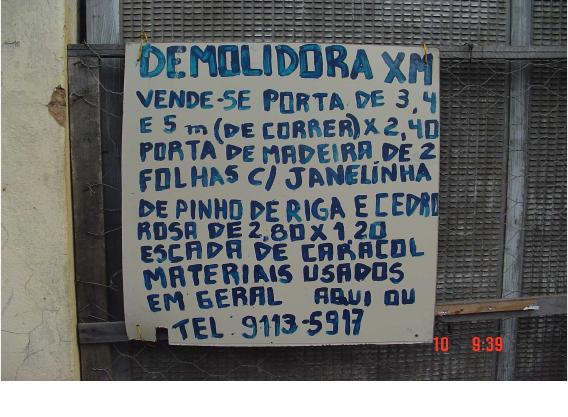 DEMOLIDORA XM
VENDE-SE PORTA DE 3,4
E 5 m (DE CORRER) X 2,40
PORTA DE MADEIRA DE 2
FOLHAS C/ JANELINHA
DE PINHO DE RIGA E CEDRO
ROSA DE 2,80 X 1,20
ESCADA DE CARACOL
MATERIAIS USADOS
EM GERAL AQUI OU
TEL: 9113-5917
10 9:39